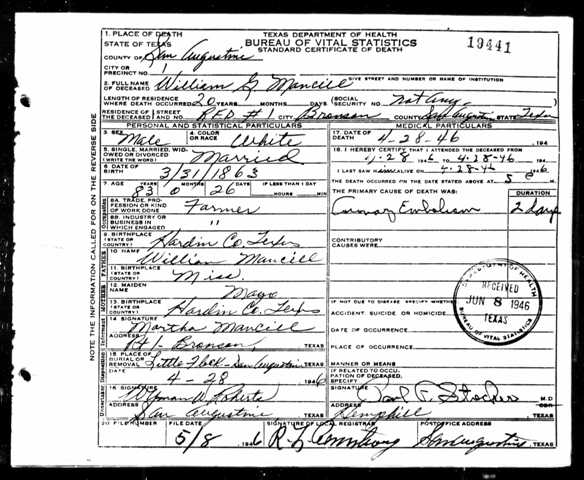 1. PLACE OF DEATH
STATE OF TEXAS
COUNTY OF San Augustine
CITY OR
PRECINCT NO. 1
TEXAS DEPARTMENT OF HEALTH
BUREAU OF VITAL STATISTICS
STANDARD CERTIFICATE OF DEATH
19441
2. FULL NAME OF DECEASED William G Mancill
GIVE STREET AND NUMBER OR NAME OF INSTITUTION
LENGTH OF RESIDENCE
WHERE DEATH OCCURRED 20 YEARS MONTHS DAYS
SOCIAL
SECURITY NO. not any
RESIDENCE OF THE DECEASED STREET AND NO. RFD #1 CITY Bronson COUNTY San Augustine STATE Texas
PERSONAL AND STATISTICAL PARTICULARS
3. SEX Male
4. COLOR OR RACE White
5. SINGLE, MARRIED, WIDOWED OR DIVORCED (WRITE THE WORD) Married
6. DATE OF BIRTH 3/31/1863
7. AGE YEARS MONTHS DAYS IF LESS THAN 1 DAY
83 0 26 HOURS MIN
8A. TRADE, PROFESSION OR KIND OF WORK DONE Farmer
8B. INDUSTRY OR BUSINESS IN WHICH ENGAGED "
9. BIRTHPLACE (STATE OR COUNTRY) Hardin Co. Texas
10. NAME William Mancill
11. BIRTHPLACE (STATE OR COUNTRY) Miss.
12. MAIDEN NAME
13. BIRTHPLACE (STATE OR COUNTRY) Hardin Co. Texas
14. SIGNATURE Martha Mancill
ADDRESS Rt 1 - Bronson TEXAS
15. PLACE OF BURIAL OR REMOVAL Little Flock - San Augustine TEXAS
DATE 4-28 1946
16. SIGNATURE Wyman W Roberts
ADDRESS San Augustine TEXAS
MEDICAL PARTICULARS
17. DATE OF DEATH 4-28-46 194
18. I HEREBY CERTIFY THAT I ATTENDED THE DECEASED FROM
4-28 1946 TO 4-28-46 194
I LAST SAW H ALIVE ON 4-28-46 1946
THE DEATH OCCURRED ON THE DATE STATED ABOVE AT 5 M
THE PRIMARY CAUSE OF DEATH WAS: DURATION
Embolism 2 days
CONTRIBUTORY
CAUSES WERE:
IF NOT DUE TO DISEASE SPECIFY WHETHER
ACCIDENT, SUICIDE, OR HOMICIDE.
DATE OF OCCURRENCE.
PLACE OF OCCURRENCE.
MANNER OR MEANS
IF RELATED TO OCCUPATION OF DECEASED, SPECIFY
SIGNATURE M.D.
ADDRESS Hemphill TEXAS
RECEIVED
JUN 8 1946
TEXAS
BUREAU OF VITAL STATISTICS
20. FILE NUMBER FILE DATE SIGNATURE OF LOCAL REGISTRAR POSTOFFICE ADDRESS
5/8 1946 San Augustine, TEXAS
NOTE THE INFORMATION CALLED FOR ON THE REVERSE SIDE